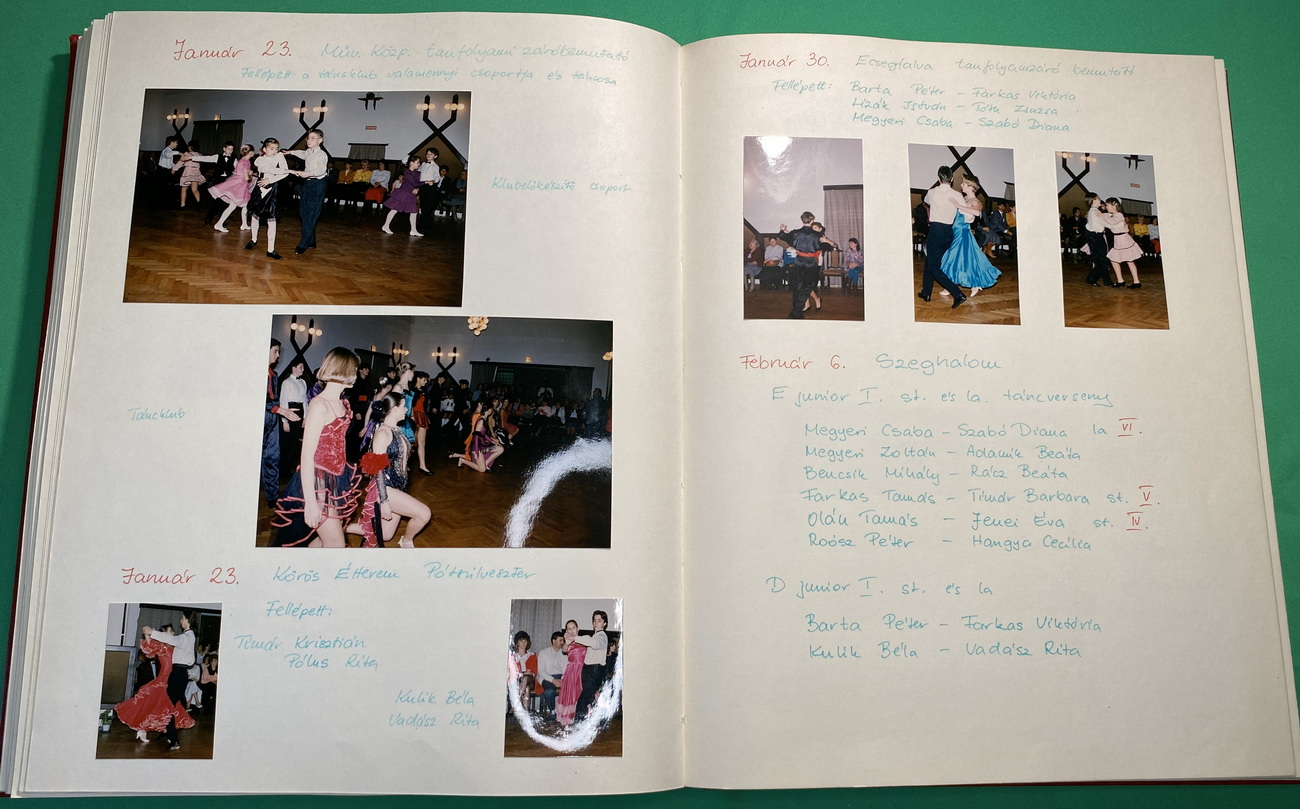 Január 23. Műv. Közp. tanfolyami záróbemutató
Fellépett a táncklub valamennyi csoportja és táncosa
Klubelőkészítő csoport
Táncklub
Január 23. Körös Étterem Pótszilveszter
Fellépett:
Timár Krisztián
Pólus Rita
Kulik Béla
Vadász Rita
Január 30. Ecsegfalva tanfolyamzáró bemutató
Fellépett: Barta Péter - Farkas Viktória
Lizák István - Tóth Zsuzsa
Megyeri Csaba - Szabó Diana
Február 6. Szeghalom
E junior I. st. és la. táncverseny
Megyeri Csaba - Szabó Diana la VI.
Megyeri Zoltán - Adamik Beáta
Bencsik Mihály - Rácz Beáta
Farkas Tamás - Timár Barbara st. V.
Oláh Tamás - Jenei Éva st. IV.
Roósz Péter - Hangya Cecília
D junior I. st. és la
Barta Péter - Farkas Viktória
Kulik Béla - Vadász Rita